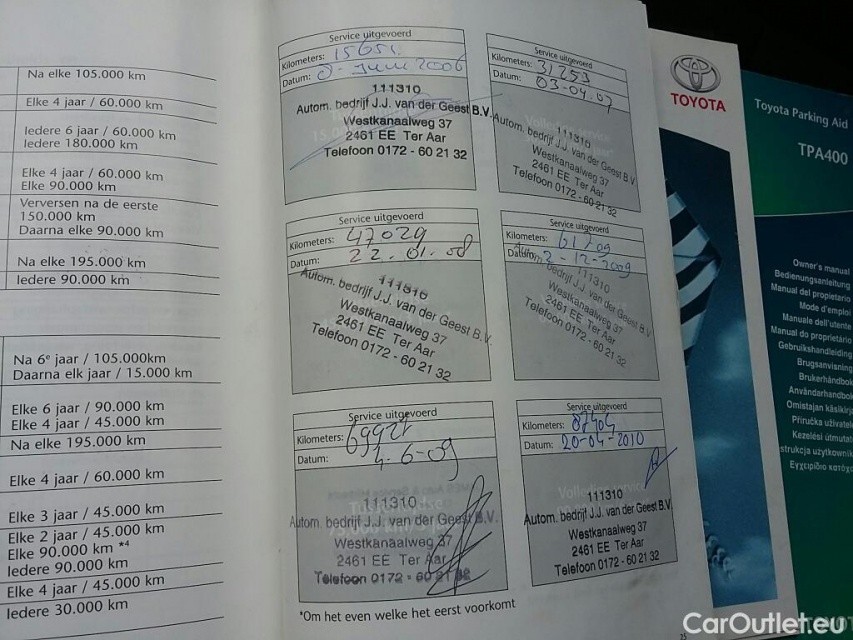 Na elke 105.000 km
Elke 4 jaar / 60.000 km
Iedere 6 jaar / 60.000 km
Iedere 180.000 km
Elke 4 jaar / 60.000 km
Elke 90.000 km
Verversen na de eerste
150.000 km
Daarna elke 90.000 km
Na elke 195.000 km
Iedere 90.000 km
Na 6e jaar / 105.000km
Daarna elk jaar / 15.000 km
Elke 6 jaar / 90.000 km
Elke 4 jaar / 45.000 km
Na elke 195.000 km
Elke 4 jaar / 60.000 km
Elke 3 jaar / 45.000 km
Elke 2 jaar / 45.000 km
Elke 90.000 km *4
Iedere 90.000 km
Elke 4 jaar / 45.000 km
Iedere 30.000 km
Service uitgevoerd
Kilometers: 15651
Datum: Juni 2006
111310
Autom. bedrijf J.J. van der Geest B.V.
Westkanaalweg 37
2461 EE Ter Aar
Telefoon 0172 - 60 21 32
Service uitgevoerd
Kilometers: 31253
Datum: 03-04.07
111310
Autom. bedrijf J.J. van der Geest B.V.
Westkanaalweg 37
2461 EE Ter Aar
Telefoon 0172 - 60 21 32
Service uitgevoerd
Kilometers: 47029
Datum: 22.01.08
111310
Autom. bedrijf J.J. van der Geest B.V.
Westkanaalweg 37
2461 EE Ter Aar
Telefoon 0172 - 60 21 32
Service uitgevoerd
Kilometers:
Datum: 2-12-2009
111310
Autom. bedrijf J.J. van der Geest B.V.
Westkanaalweg 37
2461 EE Ter Aar
Telefoon 0172 - 60 21 32
Service uitgevoerd
Kilometers: 69927
Datum: 4.6-09
111310
Autom. bedrijf J.J. van der Geest B.V.
Westkanaalweg 37
2461 EE Ter Aar
Telefoon 0172 - 60 21 32
Service uitgevoerd
Kilometers: 87404
Datum: 20-04-2010
111310
Autom. bedrijf J.J. van der Geest B.V.
Westkanaalweg 37
2461 EE Ter Aar
Telefoon 0172 - 60 21 32
*Om het even welke het eerst voorkomt
25
TOYOTA
Toyota Parking Aid
TPA400
Owner's manual
Bedienungsanleitung
Manual del propietario
Mode d'emploi
Manuale dell'utente
Manual do proprietário
Gebruikshandleiding
Brugsanvisning
Brukerhåndbok
Användarhandbok
Omistajan käsikirja
Příručka uživatele
Kezelési útmutató
strukcja użytkownika
Εγχειρίδιο κατόχου
CarOutlet.eu